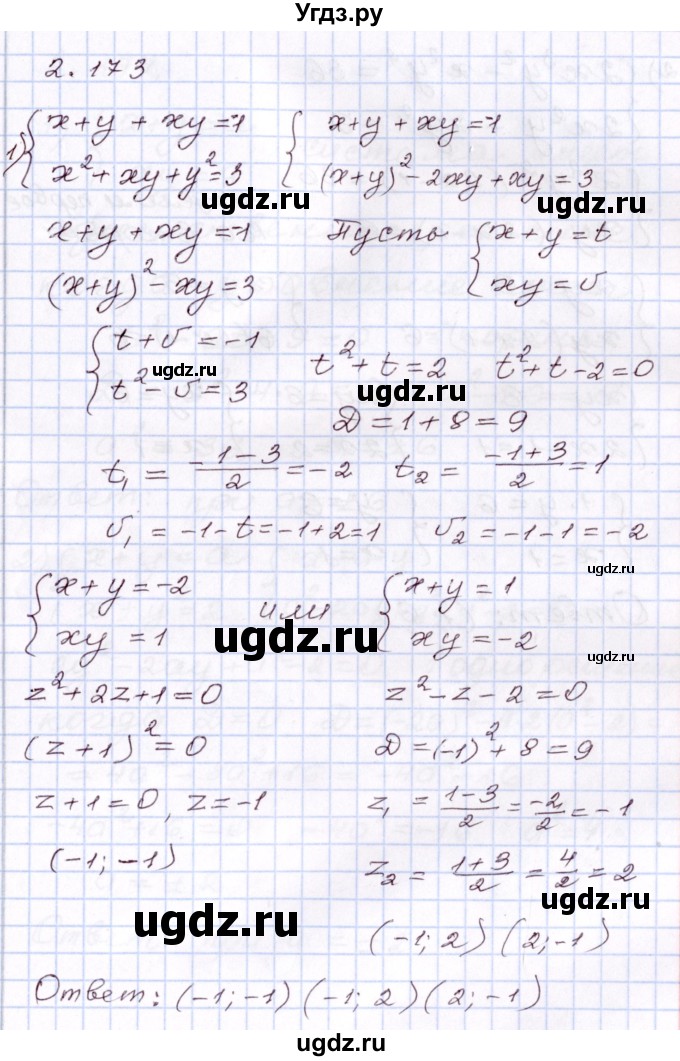 Угдз.ру
2.173
1) { x+y+xy=-1   { x+y+xy=-1
x²+xy+y²=3   (x+y)²-2xy+xy=3
ugdz.ru ugdz.ru
x+y+xy=-1   Пусть { x+y=t
(x+y)²-xy=3   xy=v
{ t+v=-1   t²+t=2   t²+t-2=0
t²-v=3
ugdz.ru ugdz.ru
D=1+8=9
t₁=(-1-3)/2=-2   t₂=(-1+3)/2=1
v₁=-1-t=-1+2=1   v₂=-1-1=-2
ugdz.ru
{ x+y=-2   или   { x+y=1
xy=1   xy=-2
ugdz.ru ugdz.ru
z²+2z+1=0   z²-z-2=0
(z+1)²=0   D=(-1)²+8=9
z+1=0, z=-1   z₁=(1-3)/2=-2/2=-1
ugdz.ru
(-1;-1)   z₂=(1+3)/2=4/2=2
ugdz.ru ugdz.ru
= (-1;2) (2;-1)
Ответ: (-1;-1) (-1;2) (2;-1)
ugdz.ru
ugdz.ru